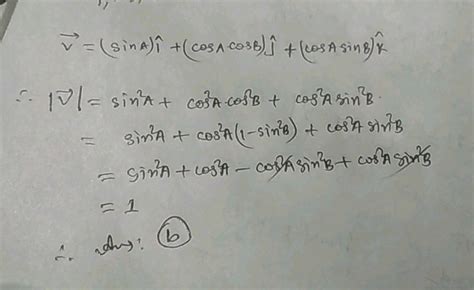 v⃗ = (sinA)î + (cosA cosB)ĵ + (cosA sinB)k̂
∴ |v⃗| = sin²A + cos²A cos²B + cos²A sin²B.
= sin²A + cos²A(1-sin²B) + cos²A sin²B
= sin²A + cos²A - cos²A sin²B + cos²A sin²B
= 1
∴ Ans: (b)